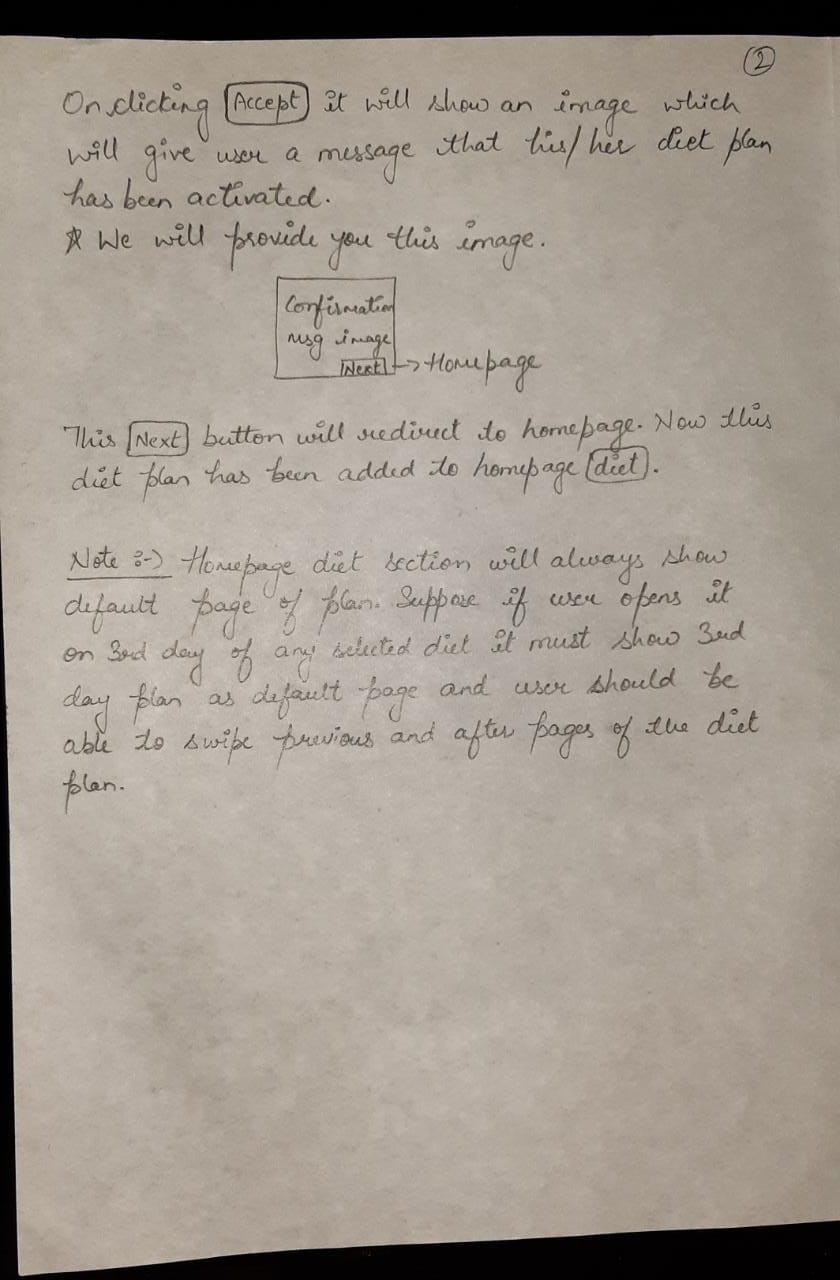 2
On clicking Accept it will show an image which
will give user a message that his/her diet plan
has been activated.
* We will provide you this image.
Confirmation
msg image
Next → Homepage
This Next button will redirect to homepage. Now this
diet plan has been added to homepage diet.
Note :-) Homepage diet section will always show
default page of plan. Suppose if user opens it
on 3rd day of any selected diet it must show 3rd
day plan as default page and user should be
able to swipe previous and after pages of the diet
plan.